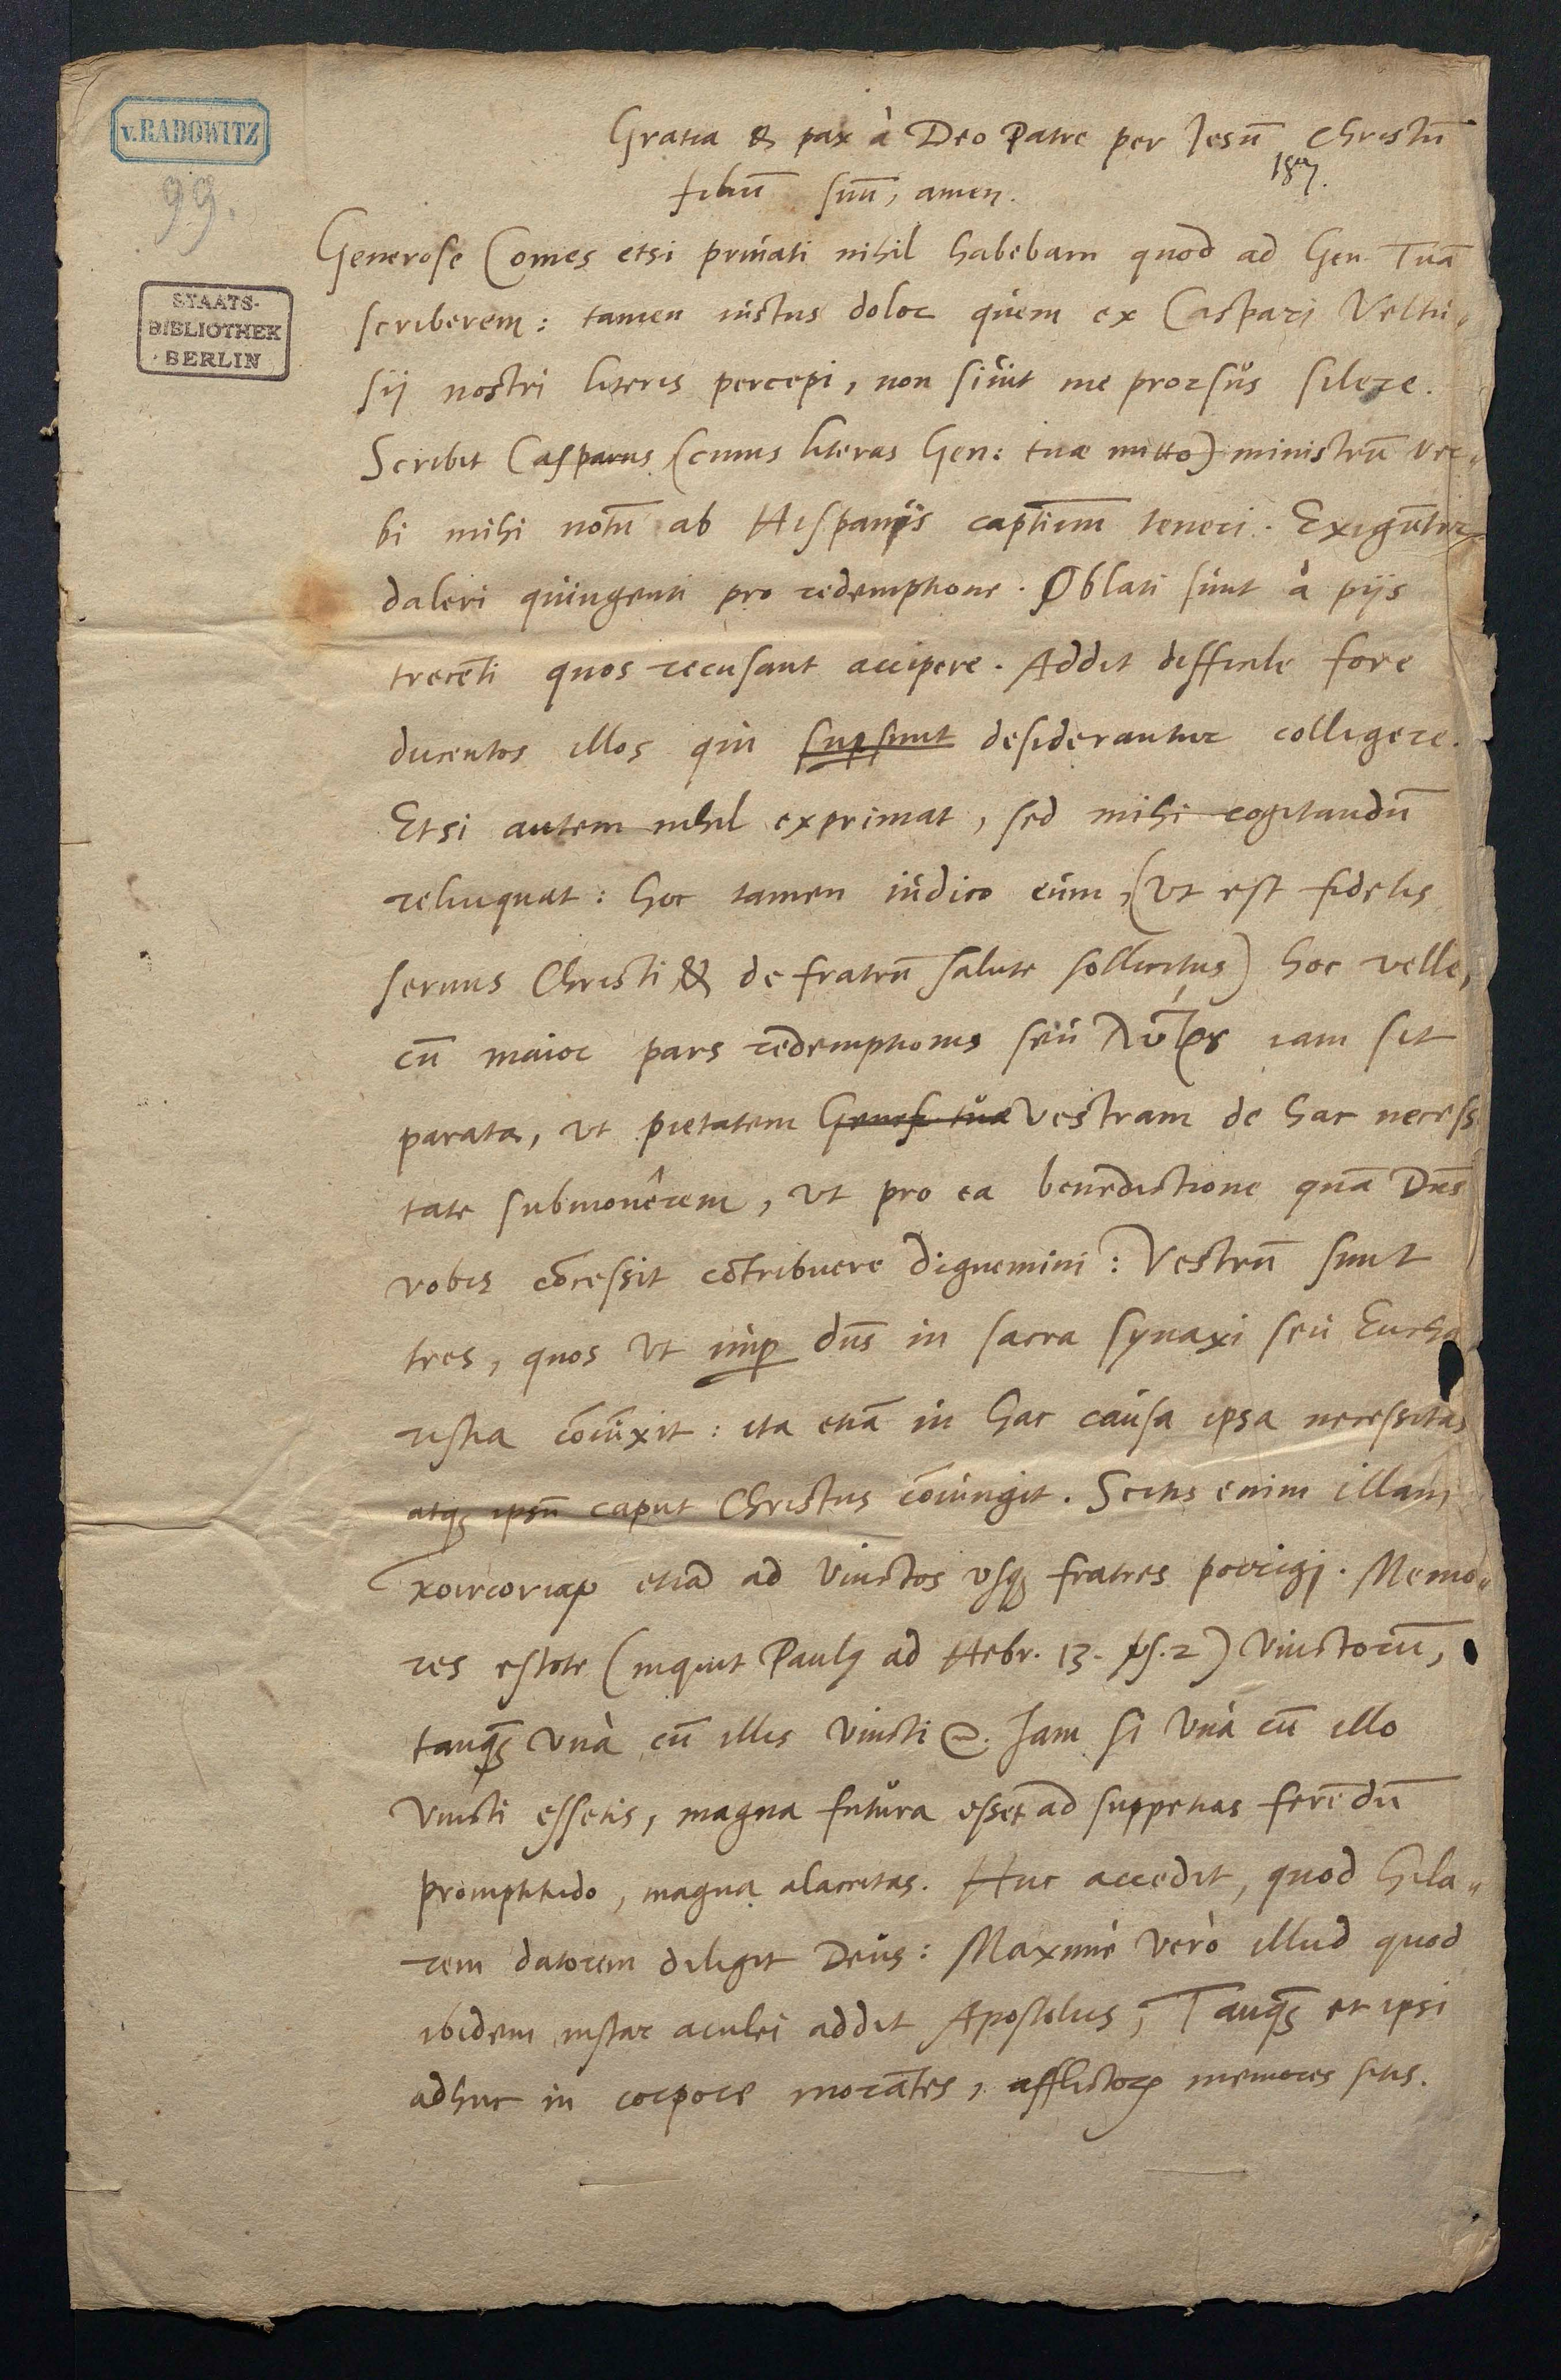 v. RADOWITZ
99.
STAATS-
BIBLIOTHEK
BERLIN
Gratia & pax à Deo Patre per Jesū Christū
187.
filiū suū, amen.
Generose Comes etsi priuati nihil habebam quod ad Gen. Tuā
scriberem: tamen iustus dolor quem ex Caspari Veltu„
sij nostri literis percepi, non siuit me prorsus silere.
Scribit Casparus (cuius literas Gen: tuæ mitto) ministrū ver„
bi mihi notū ab Hispanijs captiuum teneri. Exigūtur
daleri quingenti pro redemptione. Oblati sunt à pijs
trecēti quos recusant accipere. Addit difficile fore
ducentos illos qui supsunt desiderantur colligere.
Etsi autem nihil exprimat, sed mihi cogitandū
relinquat: hoc tamen iudico eum, (vt est fidelis
seruus Christi & de fratrū salute sollicitus) hoc velle,
cū maior pars redemptionis seu λύτρȣ iam sit
parata, vt pietatem Generos. tuæ vestram de hac necessi
tate submonêrem, vt pro ea benedictione quā Dn̄s
vobis cōcessit cōtribuere dignemini: Vestrū sunt
tres, quos vt nup dn̄s in sacra synaxi seu Eucha
ristia cōiūxit: ita etiā in hac causa ipsa necessitas
atq; ipsū caput Christus cōiungit. Scitis enim illam
κοινωνίαν etiā ad vinctos vsq; fratres porrigi. Memo„
res estote (inquit Paul9 ad Hebr. 13. vs. 2) vinctorū,
tanq̄; vnà cū illis vincti &c. Jam si vnà cū illo
vincti essetis, magna futura esset ad suppetias ferēdū
promptitudo, magna alacritas. Huc accedit, quod hila„
rem datorem diligit Deus: Maximè verò illud quod
ibidem instar aculei addit Apostolus, Tanq̄; et ipsi
adhuc in corpore morātes, afflictorꝝ memores sitis.